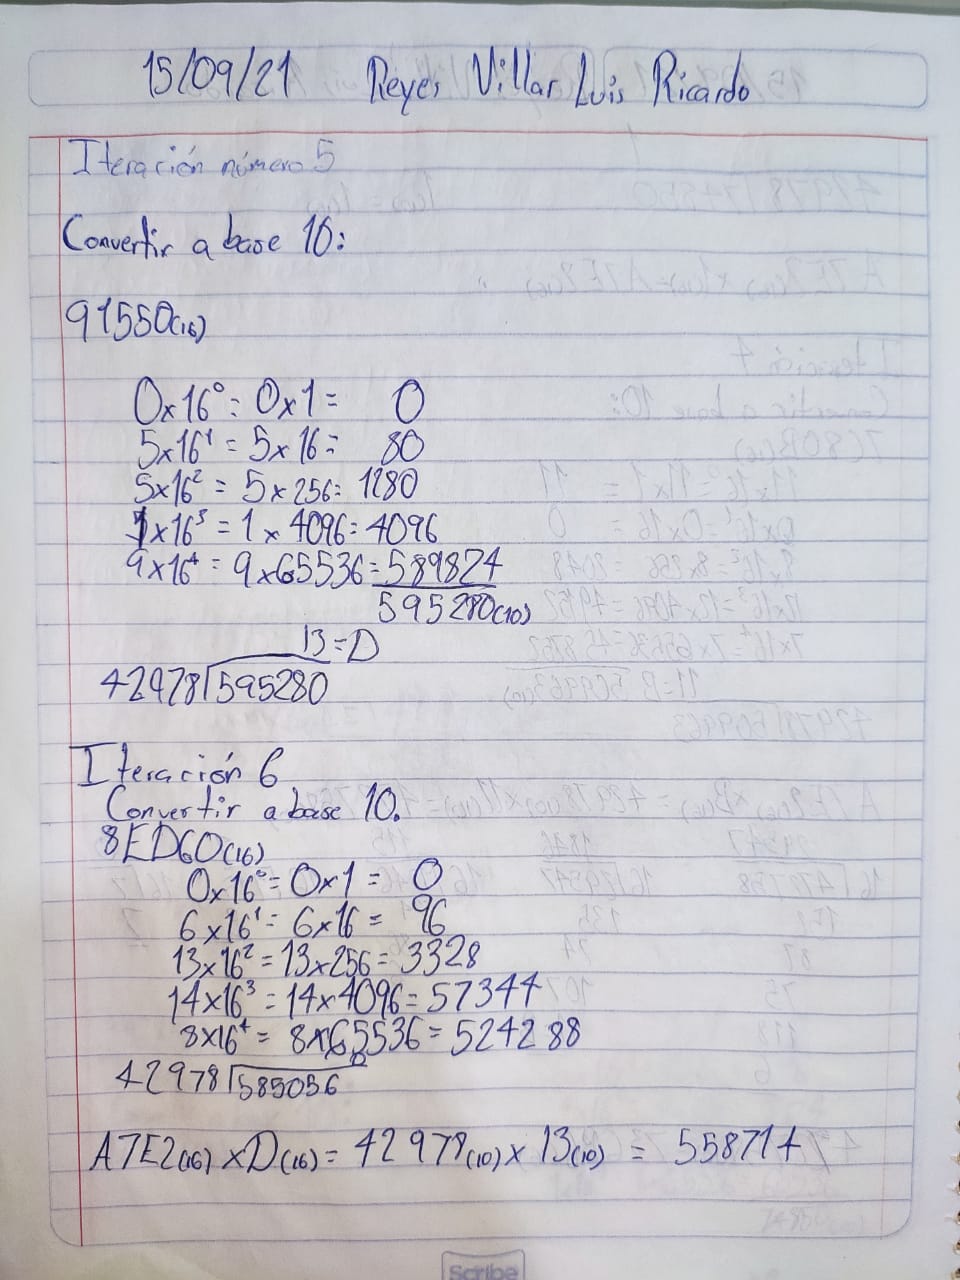 15/09/21 Reyes Villar Luis Ricardo
Iteración número 5
Convertir a base 10:
91550(16)
0x16⁰= 0x1= 0
5x16¹ = 5x16= 80
5x16² = 5x256= 1280
1x16³ = 1x 4096= 4096
9x16⁴ = 9x65536=589824
595280(10)
13=D
42978 595280
Iteración 6
Convertir a base 10.
8ED60(16)
0x16⁰= 0x1 = 0
6x16¹= 6x16 = 96
13x16² = 13x256= 3328
14x16³ = 14x4096= 57344
8x16⁴ = 8x65536= 524288
42978 585056
A7E2(16) xD(16)= 42978(10)x 13(10) = 558714
Scribe